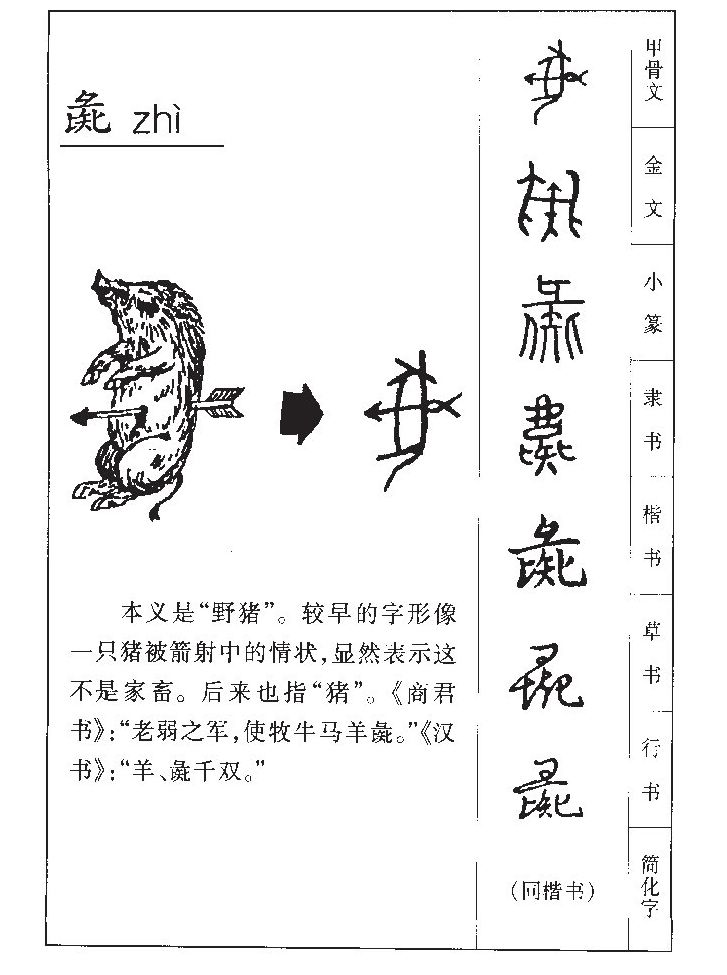 彘 zhì
本义是“野猪”。较早的字形像
一只猪被箭射中的情状，显然表示这
不是家畜。后来也指“猪”。《商君
书》：“老弱之军，使牧牛马羊彘。”《汉
书》：“羊、彘千双。”
甲骨文
金文
小篆
隶书
楷书
彘
草书
行书
简化字
（同楷书）